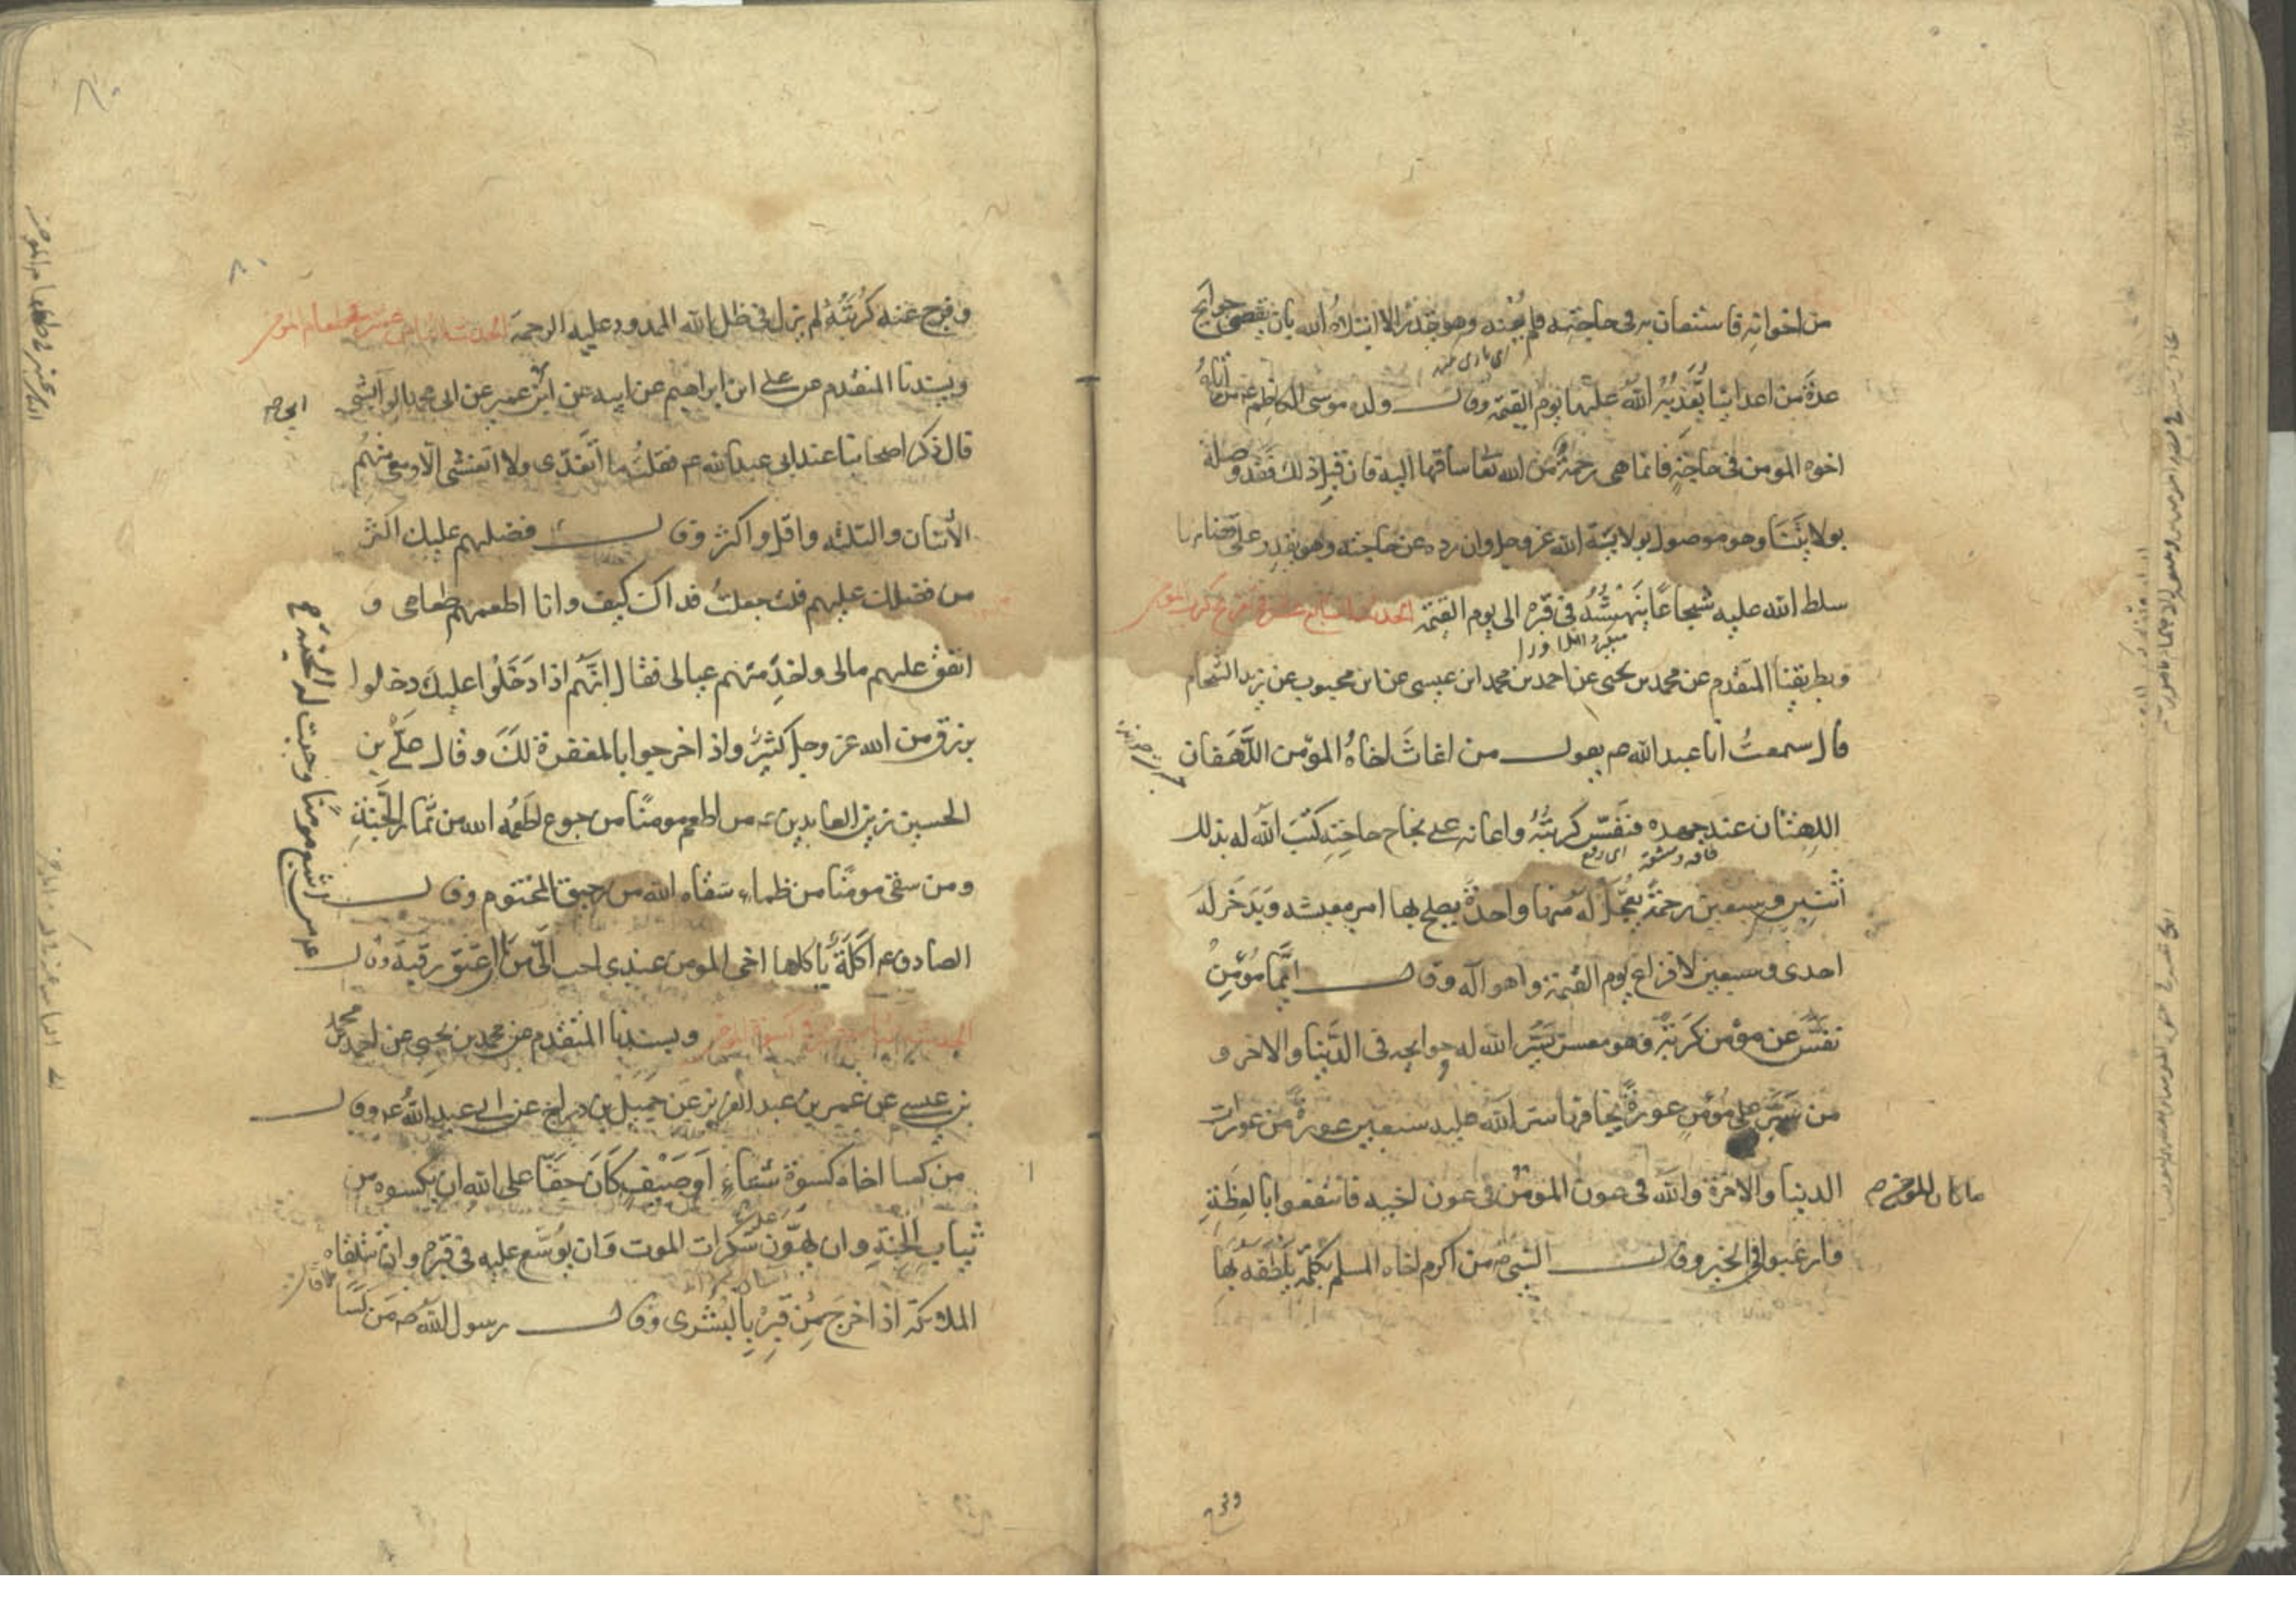 من اخوانه فاستعان به في حاجته فلم يعنه وهو يقدر الا ابتلاه الله بان يقضي حوايج
عدة من اعدائنا يعذبه الله عليها يوم القيمة وقال ولده موسى الكاظم ع من اتاه
اخوه المومن في حاجة فانما هي رحمة من الله تعا ساقها اليه فان قبل ذلك فقد وصله
بولايتنا وهو موصول بولاية الله عز وجل وان رده عن حاجته وهو يقدر على قضائها
سلط الله عليه شجاعا ينهشه في قبره الى يوم القيمة الحديث السابع عشر في تفريج كرب المومن
وبطريقنا المتقدم عن محمد بن يحيى عن احمد بن محمد ابن عيسى عن ابن محبوب عن زيد الشحام
قال سمعت ابا عبد الله ع يقول من اغاث اخاه المؤمن اللهفان
اللهثان عند جهده فنفس كربته واعانه على نجاح حاجته كتب الله له بذلك
فاقه ومشقة اى رفع
اثنتين وسبعين رحمة يعجل له منها واحدة يصلح بها امر معيشته ويدخر له
احدى وسبعين لافزاع يوم القيمة واهواله وقال ايما مؤمن
نفس عن مؤمن كربة وهو معسر يسر الله له حوايجه في الدنيا والاخر و
من ستر على مؤمن عورة يخافها ستر الله عليه سبعين عورة من عورات
الدنيا والاخرة والله في عون المؤمن في عون اخيه فانتفعوا بالعظة
ما كان المؤمن
وارغبوا في الخير وقال النبي ص من اكرم اخاه المسلم بكلمة يلطفه بها
وفرج
وفرج عنه كربته لم يزل في ظل الله الممدود عليه الرحمة الحديث الثامن عشر في اطعام المومن
وبسندنا المتقدم عن علي ابن ابراهيم عن ابيه عن ابن عمير عن ابي محمد الوابشي
ابي
قال ذكر اصحابنا عند ابي عبد الله ع فقلت ما اتغدى ولا اتعشى الا ومعي منهم
الاثنان والثلثه واقل واكثر وقال فضلهم عليك اكثر
من فضلك عليهم قلت جعلت فداك كيف وانا اطعمهم طعامي و
انفق عليهم مالي واخدمهم عيالي فقال انهم اذا دخلوا عليك دخلوا
برزق من الله عز وجل كثير واذ اخرجوا بالمغفرة لك وقال علي بن
الحسين زين العابدين ع من اطعم مومنا من جوع اطعمه الله من ثمار الجنة
ومن سقى مومنا من ظماء سقاه الله من رحيق المختوم وقال
ع من اشبع مومنا وجبت له الجنة
الصادق ع اكلة ياكلها اخي المومن عندي احب الي من ان اعتق رقبة وقال
الحديث التاسع عشر في كسوة المومن وبسندنا المتقدم عن محمد بن يحيى عن احمد بن محمد
بن عيسى عن عمر بن عبد العزيز عن جميل بن دراج عن ابي عبد الله ع وقال
من كسا اخاه كسوة شتاء او صيف كان حقا على الله ان يكسوه من
ثياب الجنة وان يهون عليه سكرات الموت وان يوسع عليه في قبره وان تتلقاه
الملائكة اذ اخرج من قبره بالبشرى وقال رسول الله ص من كسا